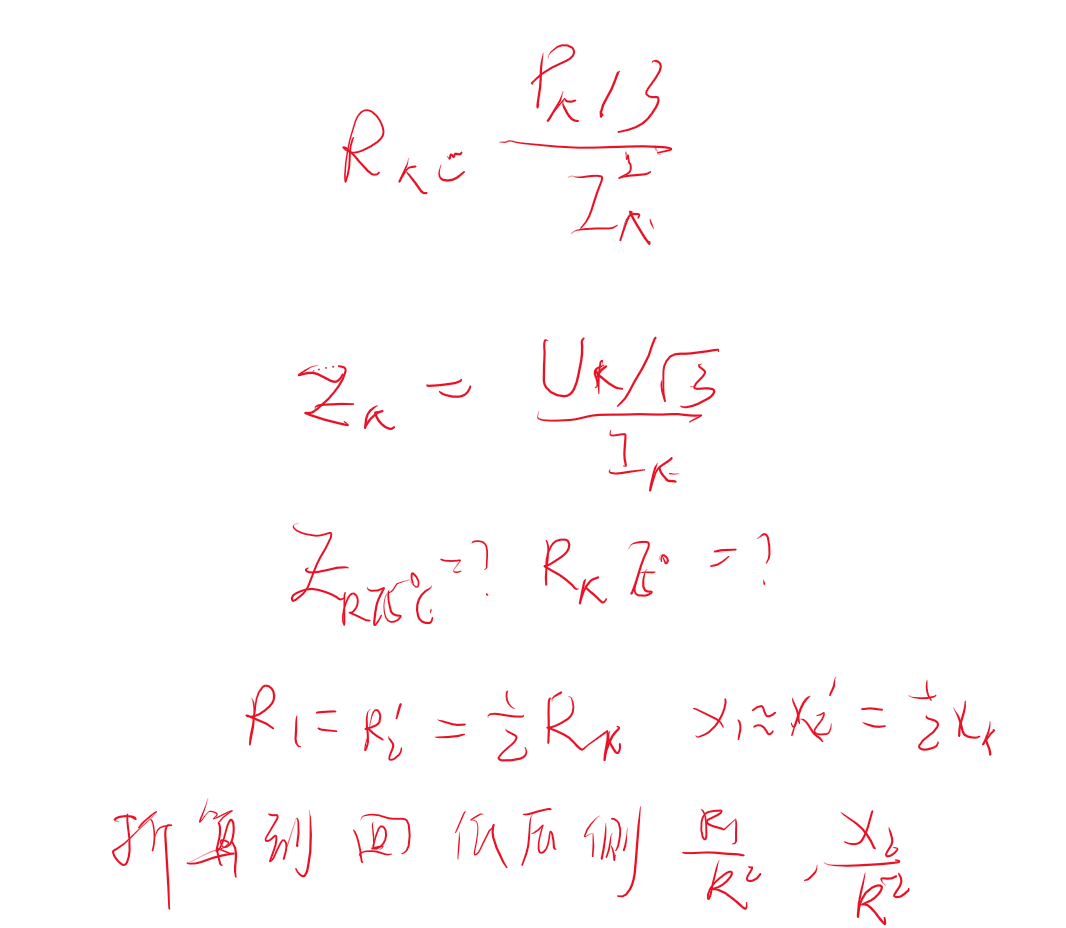 R_K = \frac{P_K/3}{I_K^2}
Z_K = \frac{U_K/\sqrt{3}}{I_K}
Z_{K75°C} = ? R_{K75°} = ?
R_1 = R_2' = \frac{1}{2} R_K X_1 ≈ X_2' = \frac{1}{2} X_K
折算到回低压侧 \frac{R_1}{K^2} , \frac{X_2}{K^2}